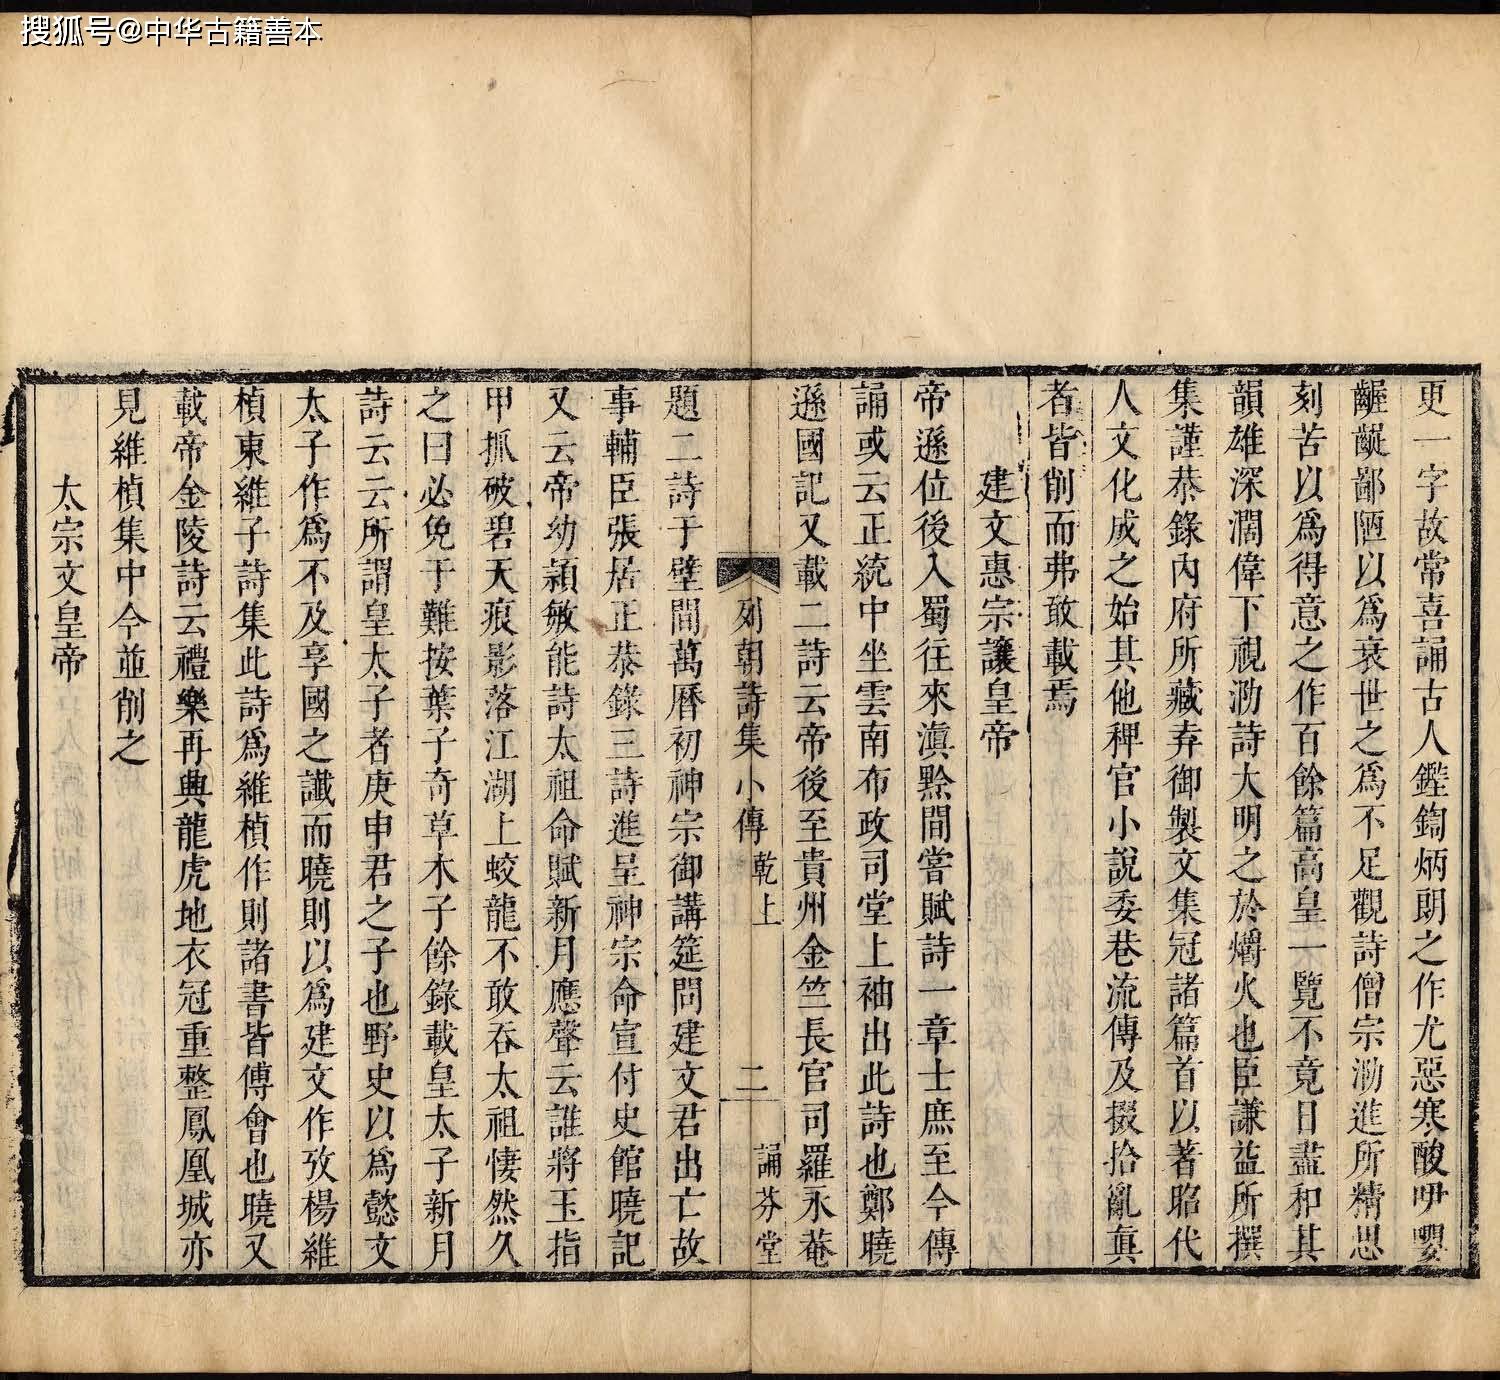 搜狐号@中华古籍善本
更一字故常喜誦古人鏗鍧炳朗之作尤惡寒酸咿嚶
齷齪鄙陋以爲衰世之爲不足觀詩僧宗泐進所精思
刻苦以爲得意之作百餘篇高皇一覽不竟日盡和其
韻雄深濶偉下視泐詩大明之於爝火也臣謙益所撰
集謹恭錄內府所藏弆御製文集冠諸篇首以著昭代
人文化成之始其他稗官小說委巷流傳及掇拾亂眞
者皆削而弗敢載焉
建文惠宗讓皇帝
帝遜位後入蜀往來滇黔間嘗賦詩一章士庶至今傳
誦或云正統中坐雲南布政司堂上袖出此詩也鄭曉
遜國記又載二詩云帝後至貴州金竺長官司羅永菴
列朝詩集小傳 乾上 二 誦芬堂
題二詩于壁間萬曆初神宗御講筵問建文君出亡故
事輔臣張居正恭錄三詩進呈神宗命宣付史館曉記
又云帝幼頴敏能詩太祖命賦新月應聲云誰將玉指
甲抓破碧天痕影落江湖上蛟龍不敢吞太祖悽然久
之曰必免于難按葉子奇草木子餘錄載皇太子新月
詩云云所謂皇太子者庚申君之子也野史以爲懿文
太子作爲不及享國之讖而曉則以爲建文作攷楊維
楨東維子詩集此詩爲維楨作則諸書皆傅會也曉又
載帝金陵詩云禮樂再興龍虎地衣冠重整鳳凰城亦
見維楨集中今並削之
太宗文皇帝